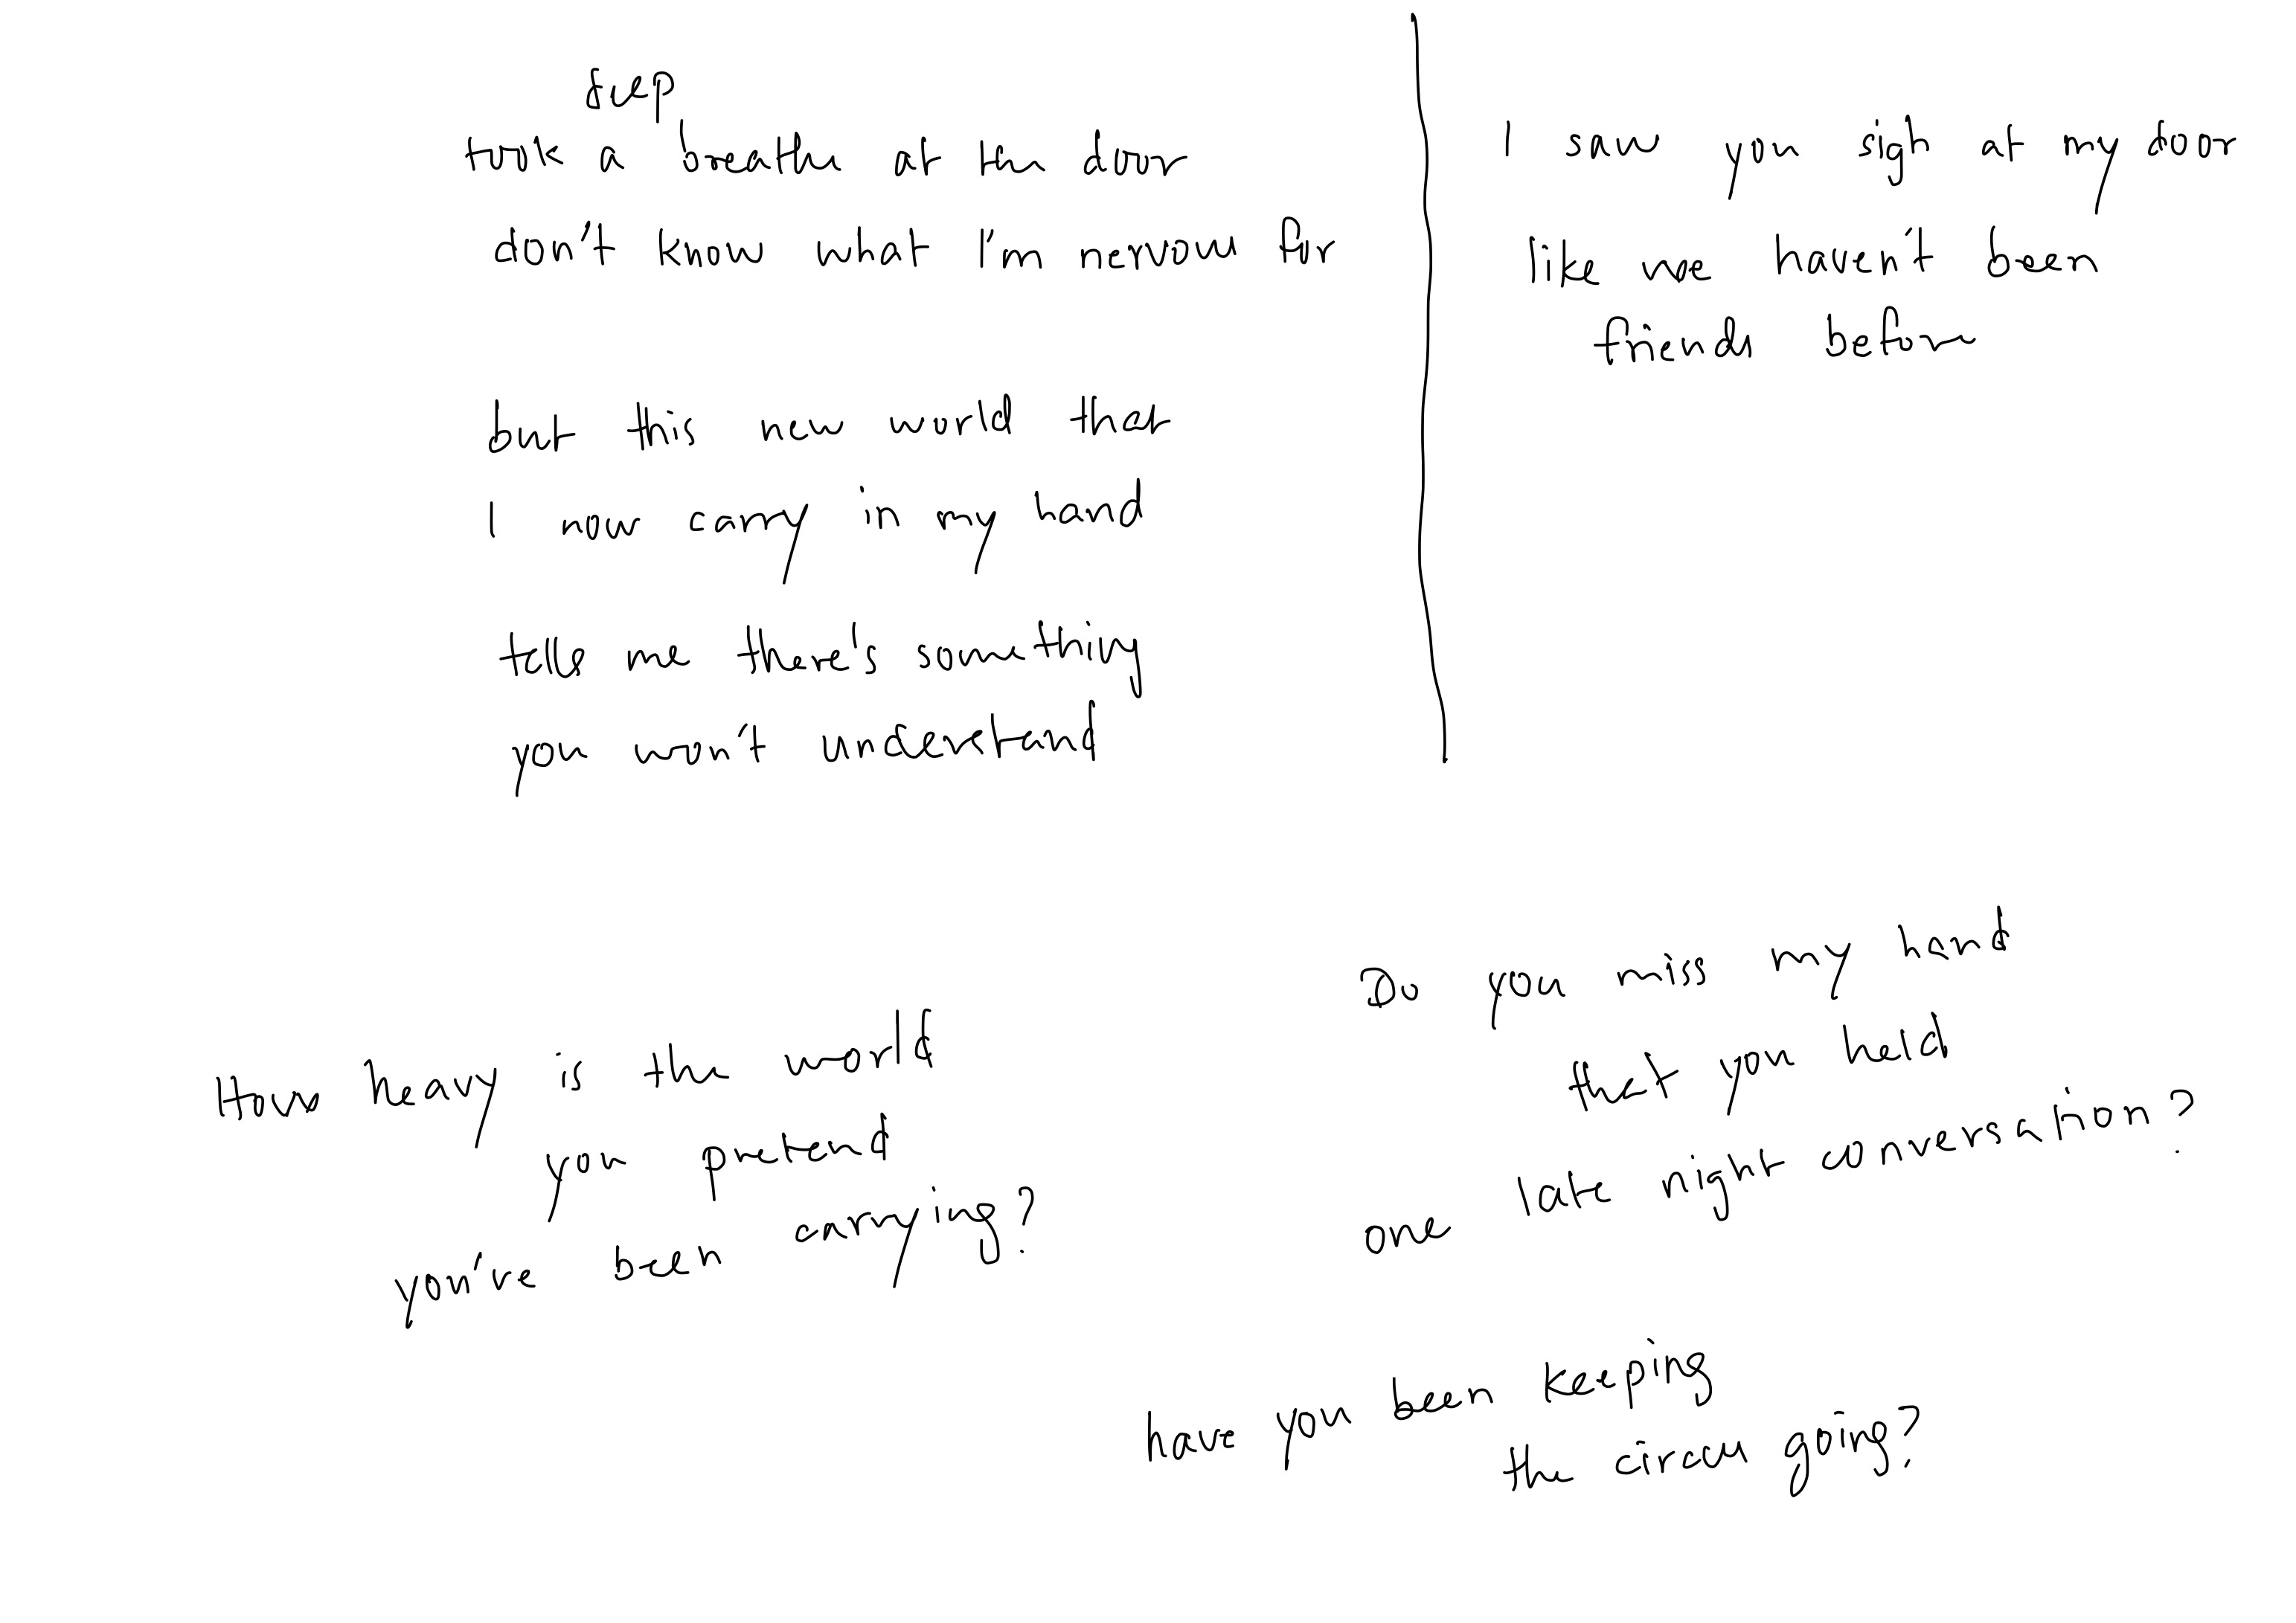 deep
took a breath at the door
don't know what I'm nervous for
but this new world that
I now carry in my hand
tells me there's something
you won't understand
I saw you sigh at my door
like we haven't been
friends before
How heavy is the world
you pretend
you've been carrying?
Do you miss my hand
that you held
one late night conversation?
have you been keeping
the circus going?